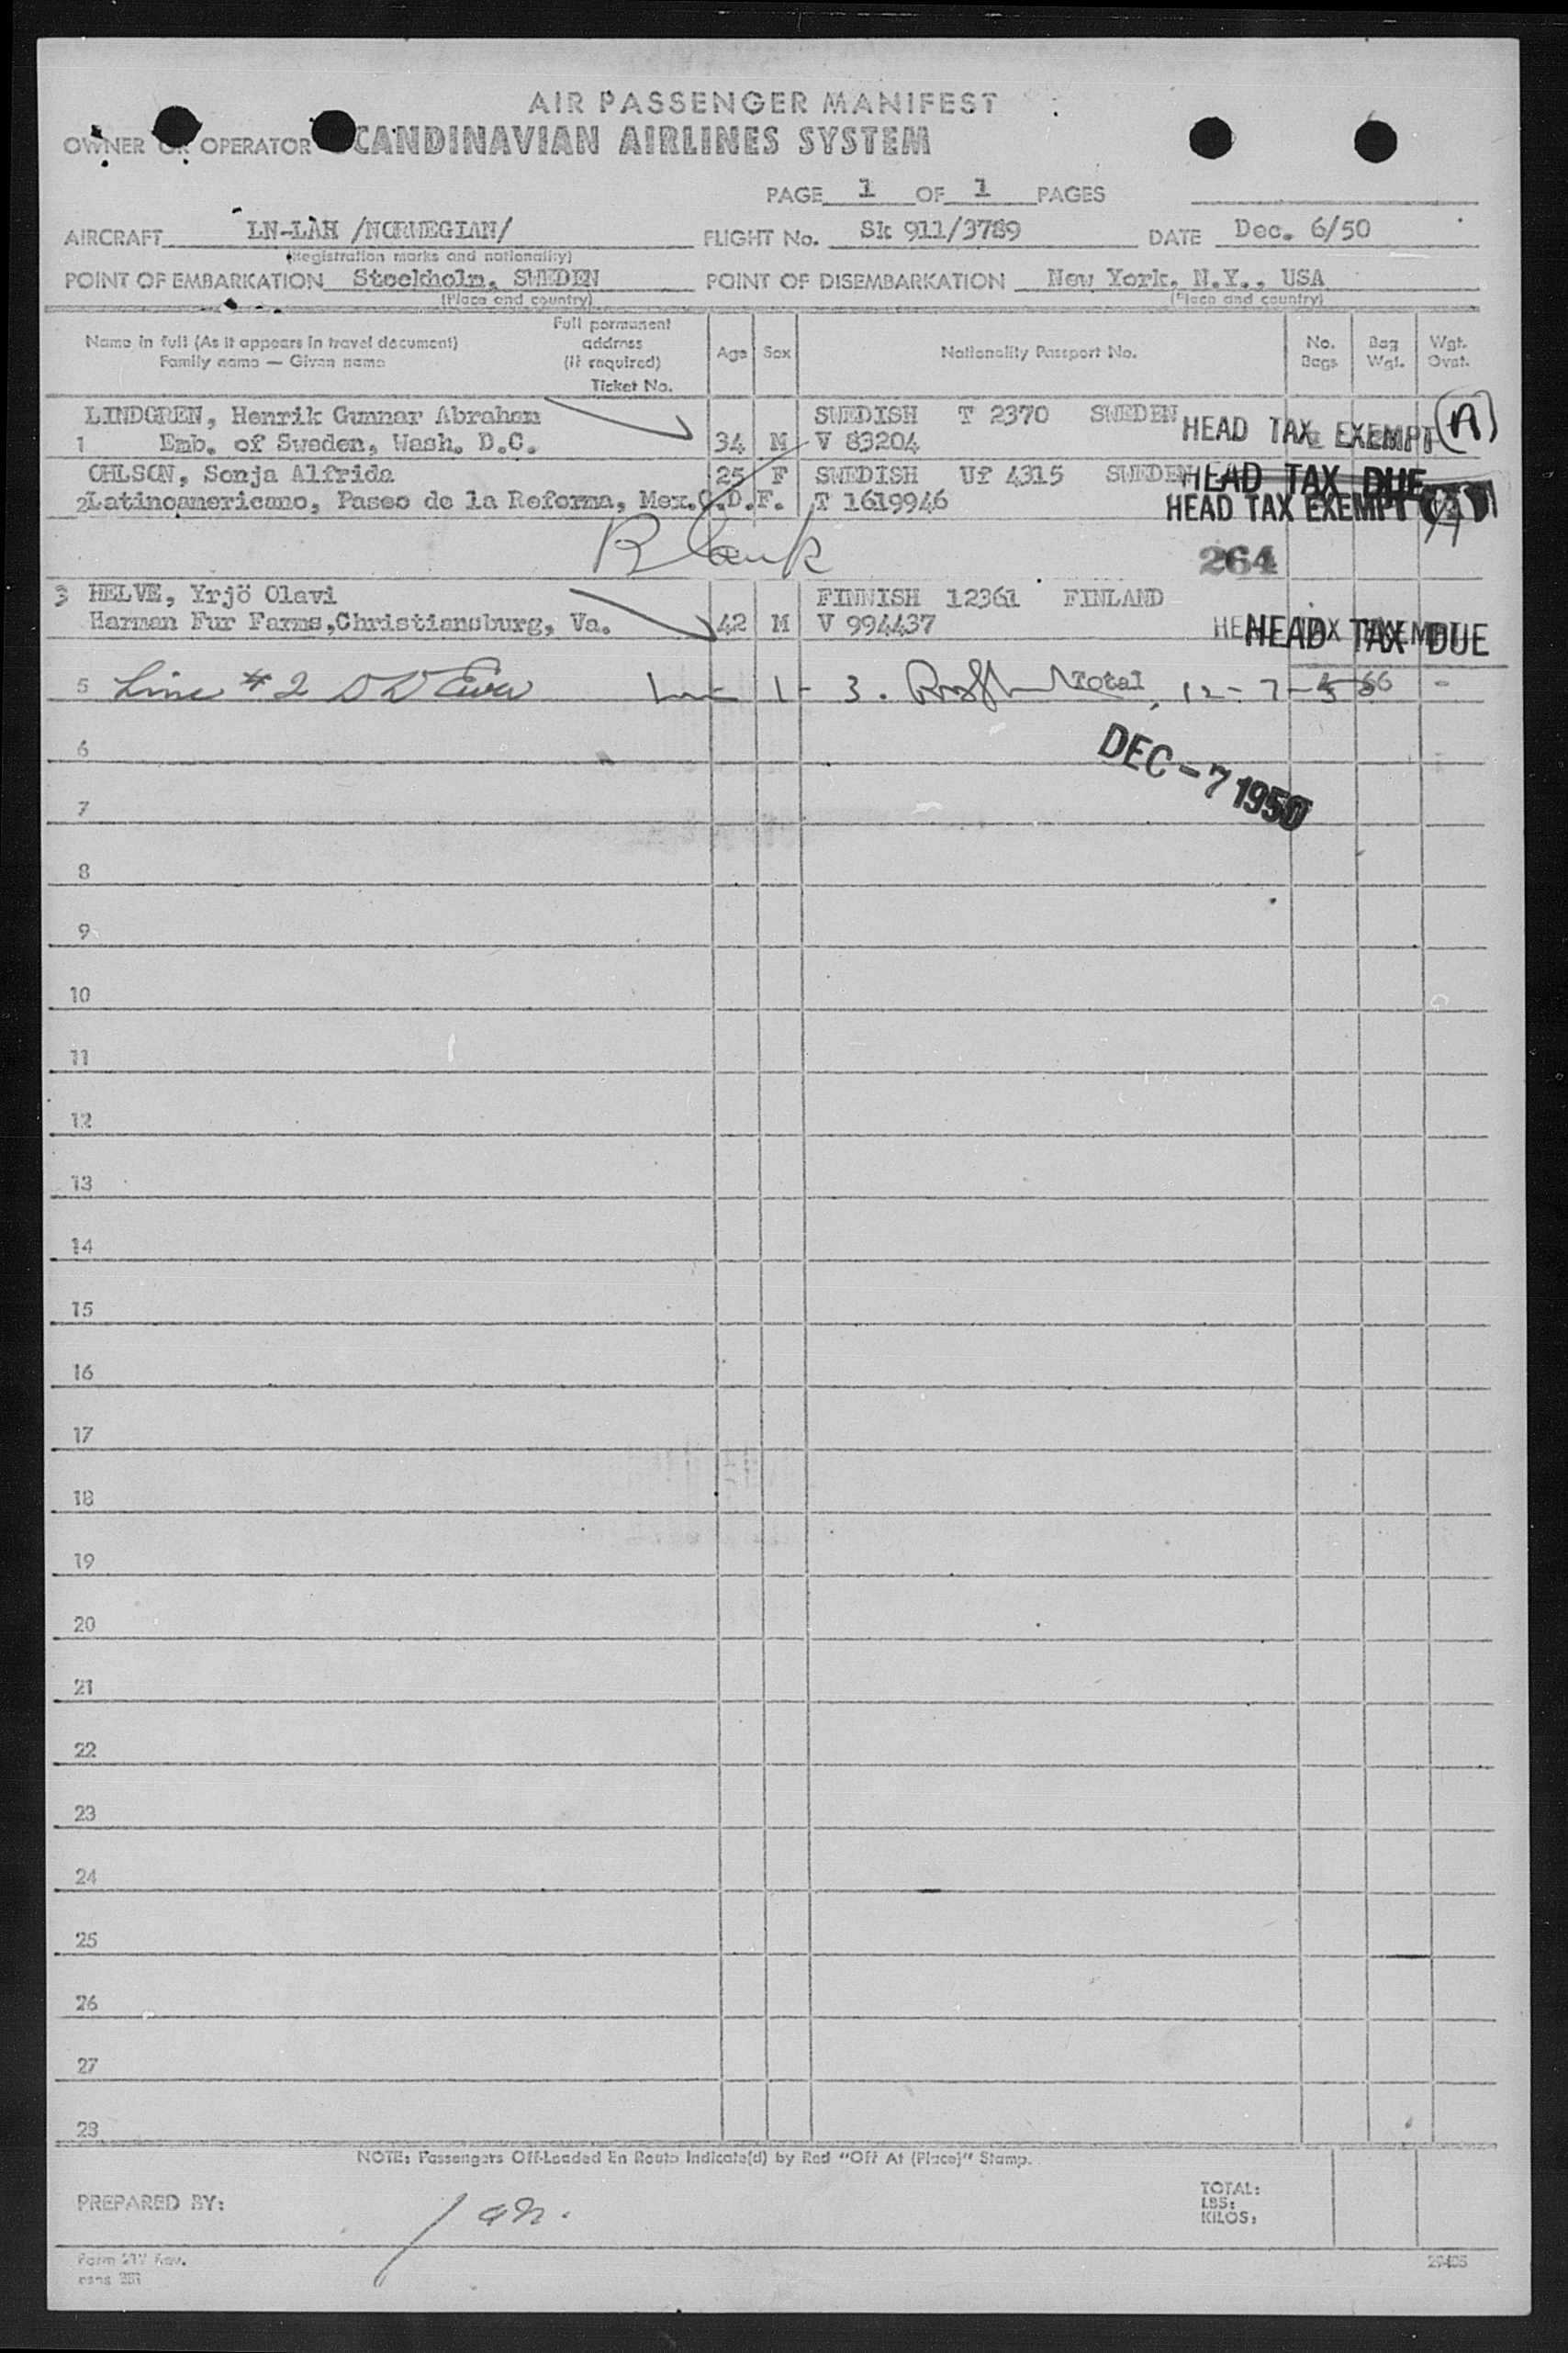 AIR PASSENGER MANIFEST
OWNER OR OPERATOR SCANDINAVIAN AIRLINES SYSTEM
PAGE 1 OF 1 PAGES
AIRCRAFT LN-LAH /NORWEGIAN/ FLIGHT No. Sk 911/3789 DATE Dec. 6/50
(Registration marks and nationality)
POINT OF EMBARKATION Stockholm, SWEDEN POINT OF DISEMBARKATION New York, N.Y., USA
(Place and country) (Place and country)
Name in full (As it appears in travel document) Family name — Given name
Full permanent address (if required) Ticket No.
Age Sex Nationality Passport No. No. Bags Bag Wgt. Wgt. Ovgt.
LINDGREN, Henrik Gunnar Abraham SWEDISH T 2370 SWEDEN HEAD TAX EXEMPT (A)
1 Emb. of Sweden, Wash. D.C. 34 M V 83204
OHLSON, Sonja Alfrida 25 F SWEDISH Uf 4315 SWEDEN HEAD TAX DUE
2 Latinoamericano, Paseo de la Reforma, Mex.C.D.F. T 1619946 HEAD TAX EXEMPT
Blank 264
3 HELVE, Yrjö Olavi FINNISH 12361 FINLAND
Harman Fur Farms,Christiansburg, Va. 42 M V 994437 HEAD TAX DUE
5 Line # 2 1 - 3. Total 12-7-50
6
DEC -7 1950
7
8
9
10
11
12
13
14
15
16
17
18
19
20
21
22
23
24
25
26
27
28
NOTE: Passengers Off-Loaded En Route Indicate(d) by Red "Off At (Place)" Stamp.
PREPARED BY: TOTAL:
LBS:
KILOS:
Form Rev.